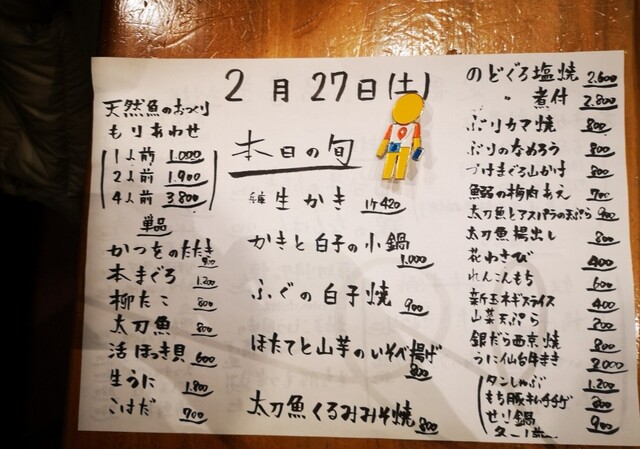 2月27日(土)
天然魚のおつくり
もりあわせ
1人前 1.000
2人前 1.900
4人前 3.800
単品
かつをのたたき 900
本まぐろ 1.200
柳たこ 800
太刀魚 800
活ほっき貝 600
生うに 1.800
こはだ 700
本日の旬
生かき 1ケ420
かきと白子の小鍋 1.000
ふぐの白子焼 900
ほたてと山芋のいそべ揚げ 800
太刀魚くるみみそ焼 800
のどぐろ塩焼 2.600
〃 煮付 2.800
ぶりカマ焼 800
ぶりのなめろう 800
づけまぐろ山かけ 800
鰯の梅肉あえ 700
太刀魚とアスパラの天ぷら 900
太刀魚揚出し 800
花わさび 400
れんこんもち 600
新玉ネギスライス 400
山菜天ぷら 800
銀だら西京焼 800
うに仙台牛まき 2000
タンしゃぶ 1.200
もち豚キムチチゲ 800
せり鍋 900